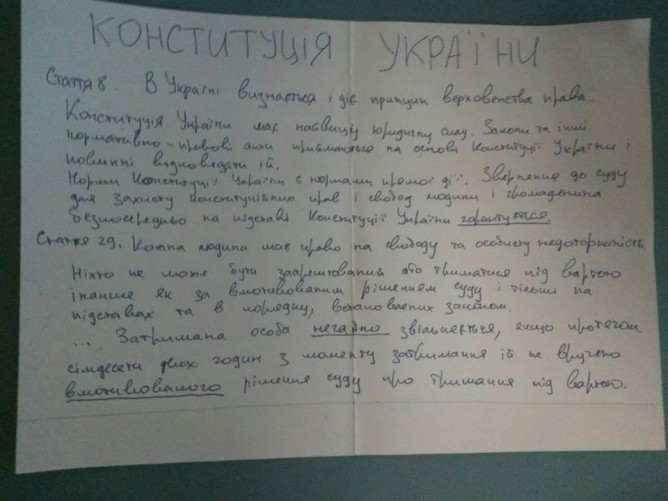 КОНСТИТУЦІЯ УКРАЇНИ
Стаття 8. В Україні визнається і діє принцип верховенства права.
Конституція України має найвищу юридичну силу. Закони та інші
нормативно-правові акти приймаються на основі Конституції України і
повинні відповідати їй.
Норми Конституції України є нормами прямої дії. Звернення до суду
для захисту конституційних прав і свобод людини і громадянина
безпосередньо на підставі Конституції України гарантується.
Стаття 29. Кожна людина має право на свободу та особисту недоторканість.
Ніхто не може бути заарештований або триматися під вартою
інакше як за вмотивованим рішенням суду і тільки на
підставах та в порядку, встановлених законом.
... Затримана особа негайно звільняється, якщо протягом
сімдесяти двох годин з моменту затримання їй не вручено
вмотивованого рішення суду про тримання під вартою.